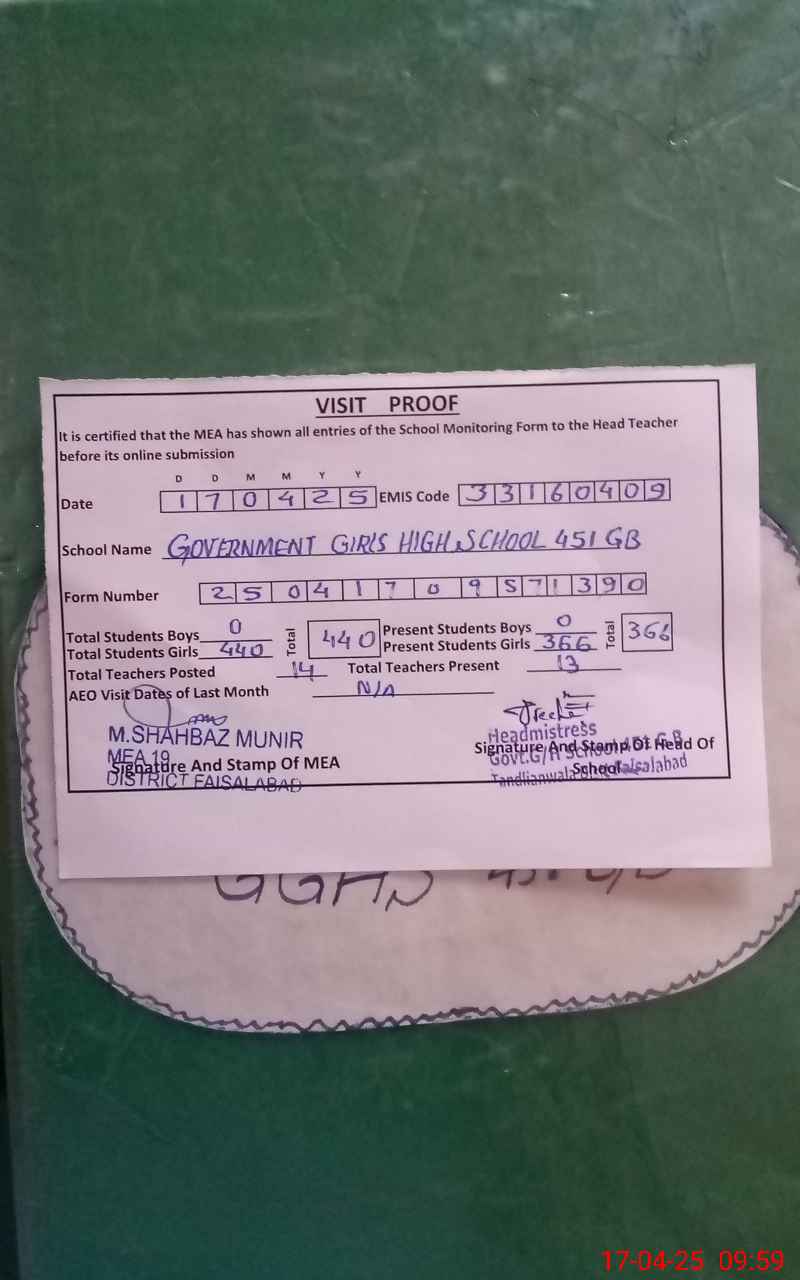 VISIT PROOF
It is certified that the MEA has shown all entries of the School Monitoring Form to the Head Teacher
before its online submission
D D M M Y Y
Date 1 7 0 4 2 5 EMIS Code 3 3 1 6 0 4 0 9
School Name GOVERNMENT GIRLS HIGH SCHOOL 451 GB
Form Number 2 5 0 4 1 7 0 9 5 7 1 3 9 0
Total Students Boys 0 Total 440 Present Students Boys 0 Total 366
Total Students Girls 440 Present Students Girls 366
Total Teachers Posted 14 Total Teachers Present 13
AEO Visit Dates of Last Month N/A
M.SHAHBAZ MUNIR
MEA 19
DISTRICT FAISALABAD
Signature And Stamp Of MEA
Headmistress
Govt.G/H School 451 G.B
Tandlianwala Faisalabad
Signature And Stamp Of Head Of
School
GGHS 451 GB
17-04-25 09:59